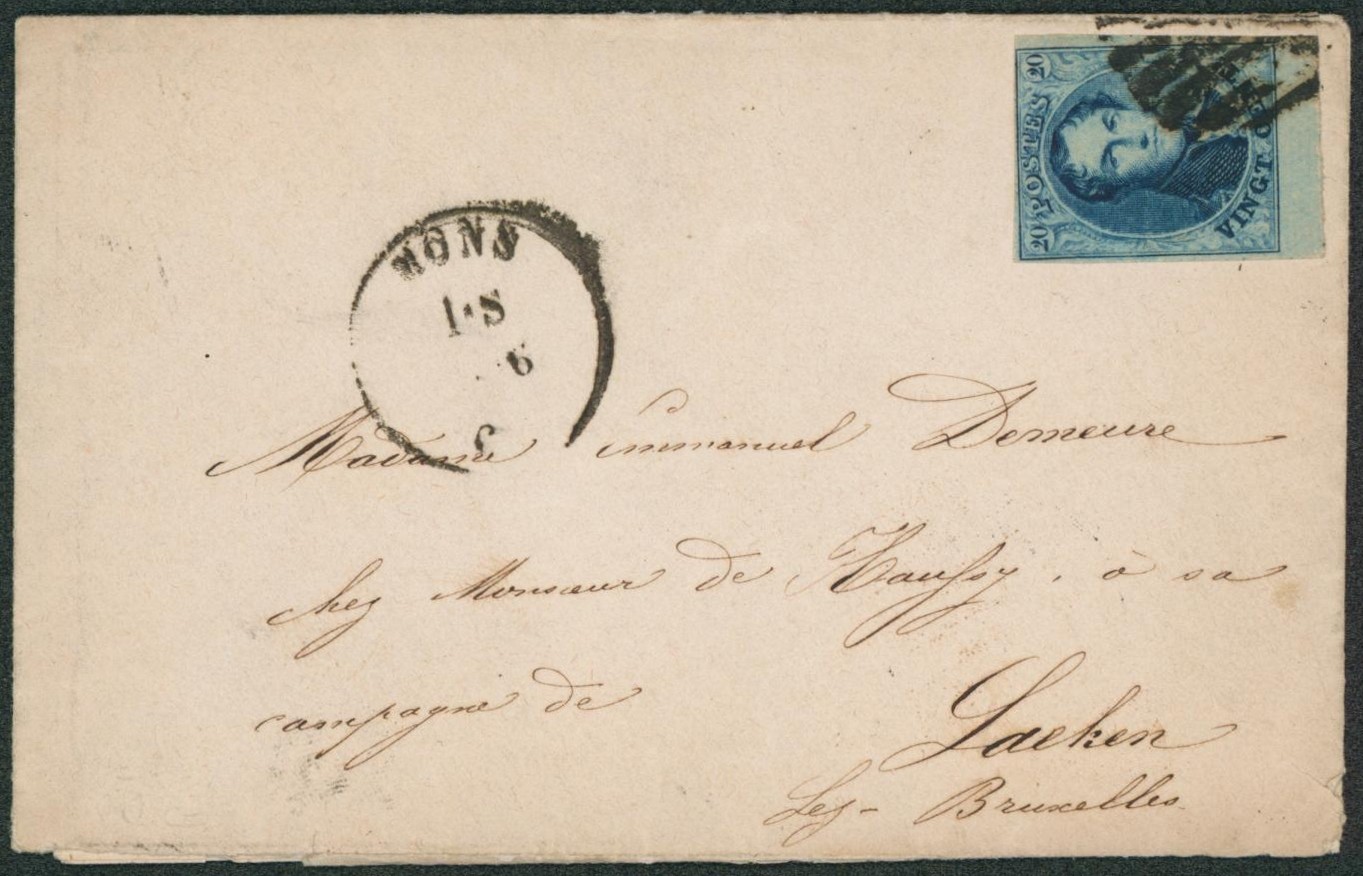 20 POSTES 20
VINGT
MONS
1·S
6
Madame Emmanuel Demeure
chez Monsieur de Haussy, à sa
campagne de
Laeken
Lez-Bruxelles